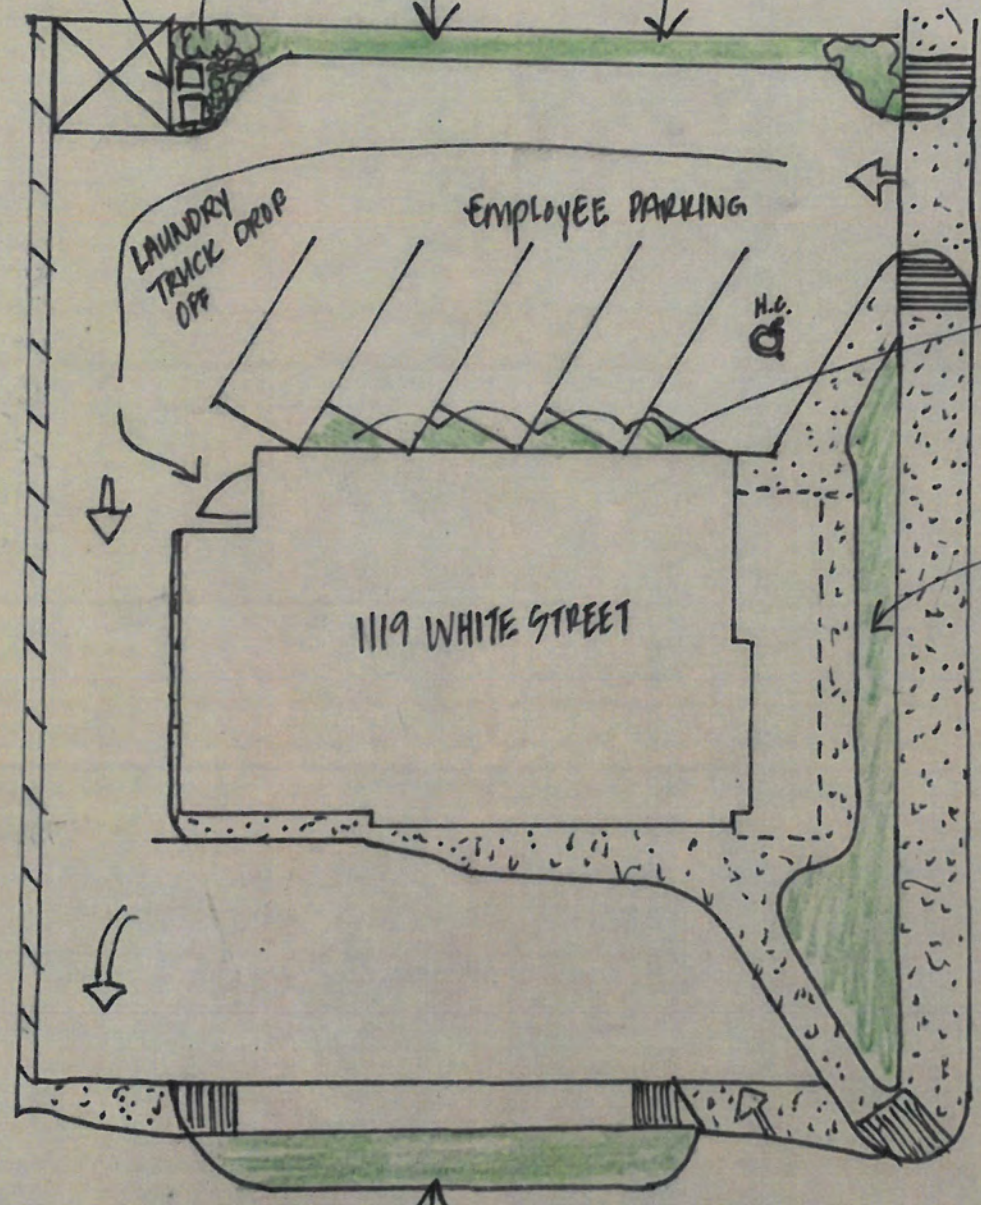 LAUNDRY
TRUCK DROP
OFF
EmployEE PARKING
H.C.
1119 WHITE STREET